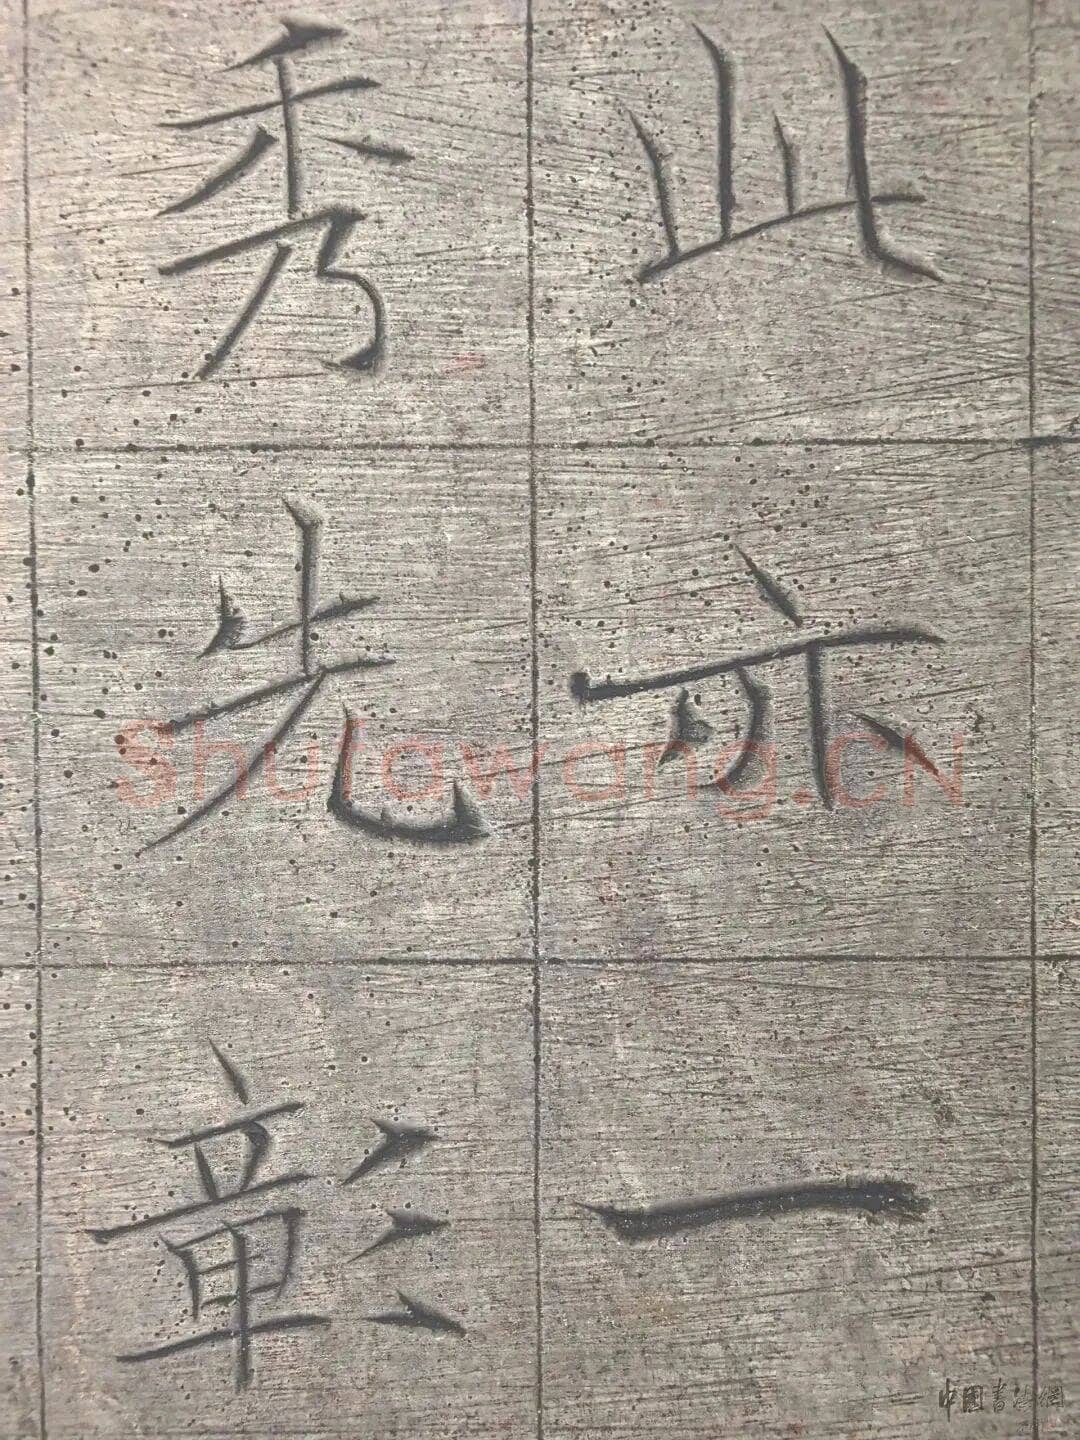 此亦一
秀先彰
Shufawang.CN
中國書法網